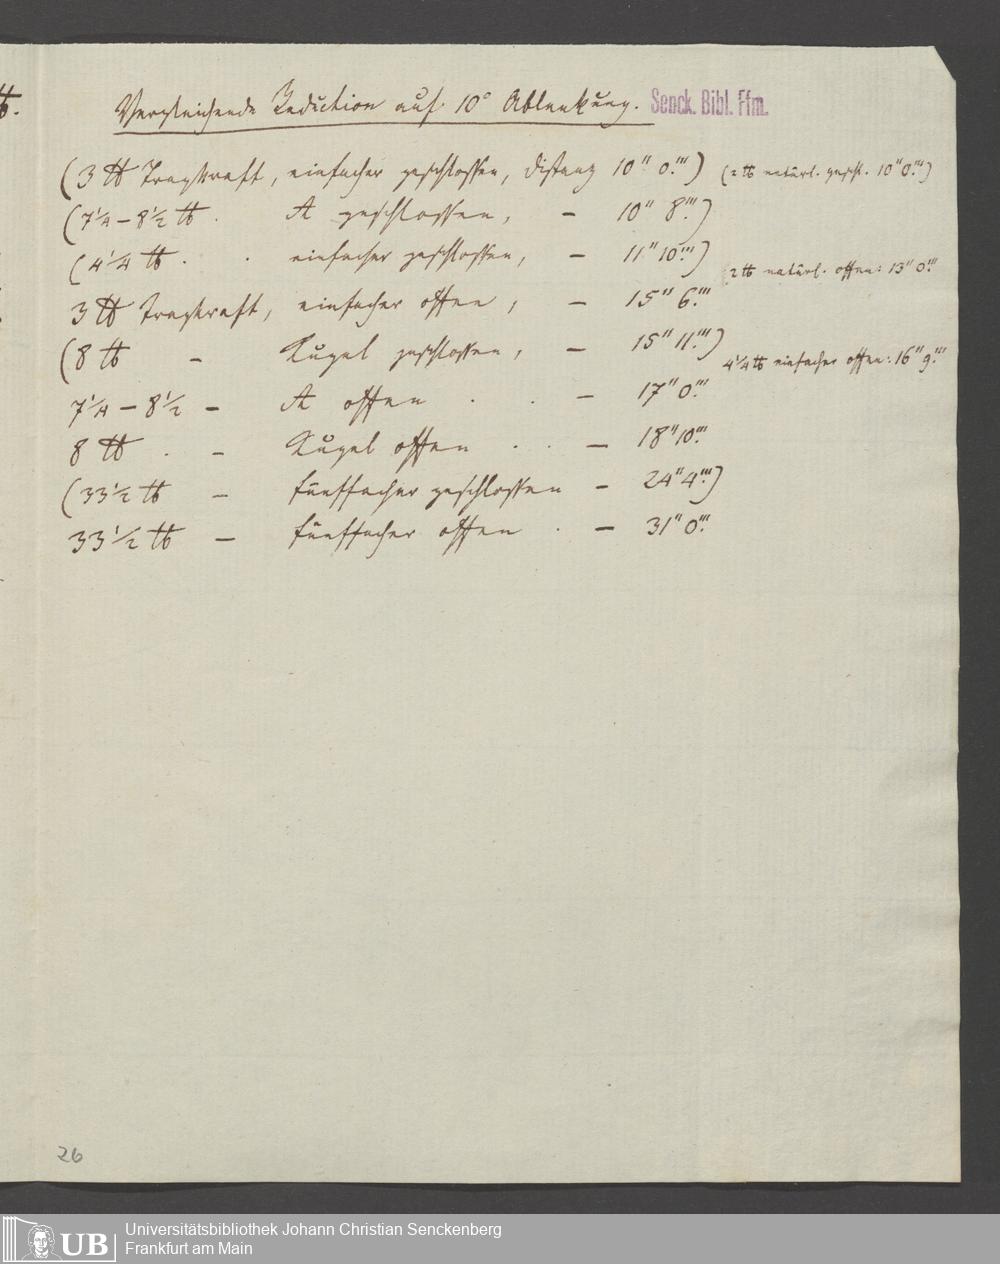 ℔.
Vergleichende Reduction auf 10° Ablenkung.
Senck. Bibl. Ffm.
(3 ℔ Tragkraft, einfacher geschlossen, Distanz 10" 0.''')
(2 ℔ natürl. geschl. 10" 0.''')
(7 1/4 – 8 1/2 ℔ . A geschlossen, – 10" 8.''')
(4 1/4 ℔ . . einfacher geschlossen, – 11" 10.''')
(2 ℔ natürl. offen: 13" 0.'''
3 ℔ Tragkraft, einfacher offen, – 15" 6.'''
(8 ℔ – Kugel geschlossen, – 15" 11.''')
4 1/4 ℔ einfacher offen: 16" 9.'''
7 1/4 – 8 1/2 – A offen . . – 17" 0.'''
8 ℔ . – Kugel offen . . – 18" 10.'''
(33 1/2 ℔ – fünffacher geschlossen – 24" 4.''')
33 1/2 ℔ – fünffacher offen . – 31" 0.'''
26
UB
Universitätsbibliothek Johann Christian Senckenberg
Frankfurt am Main